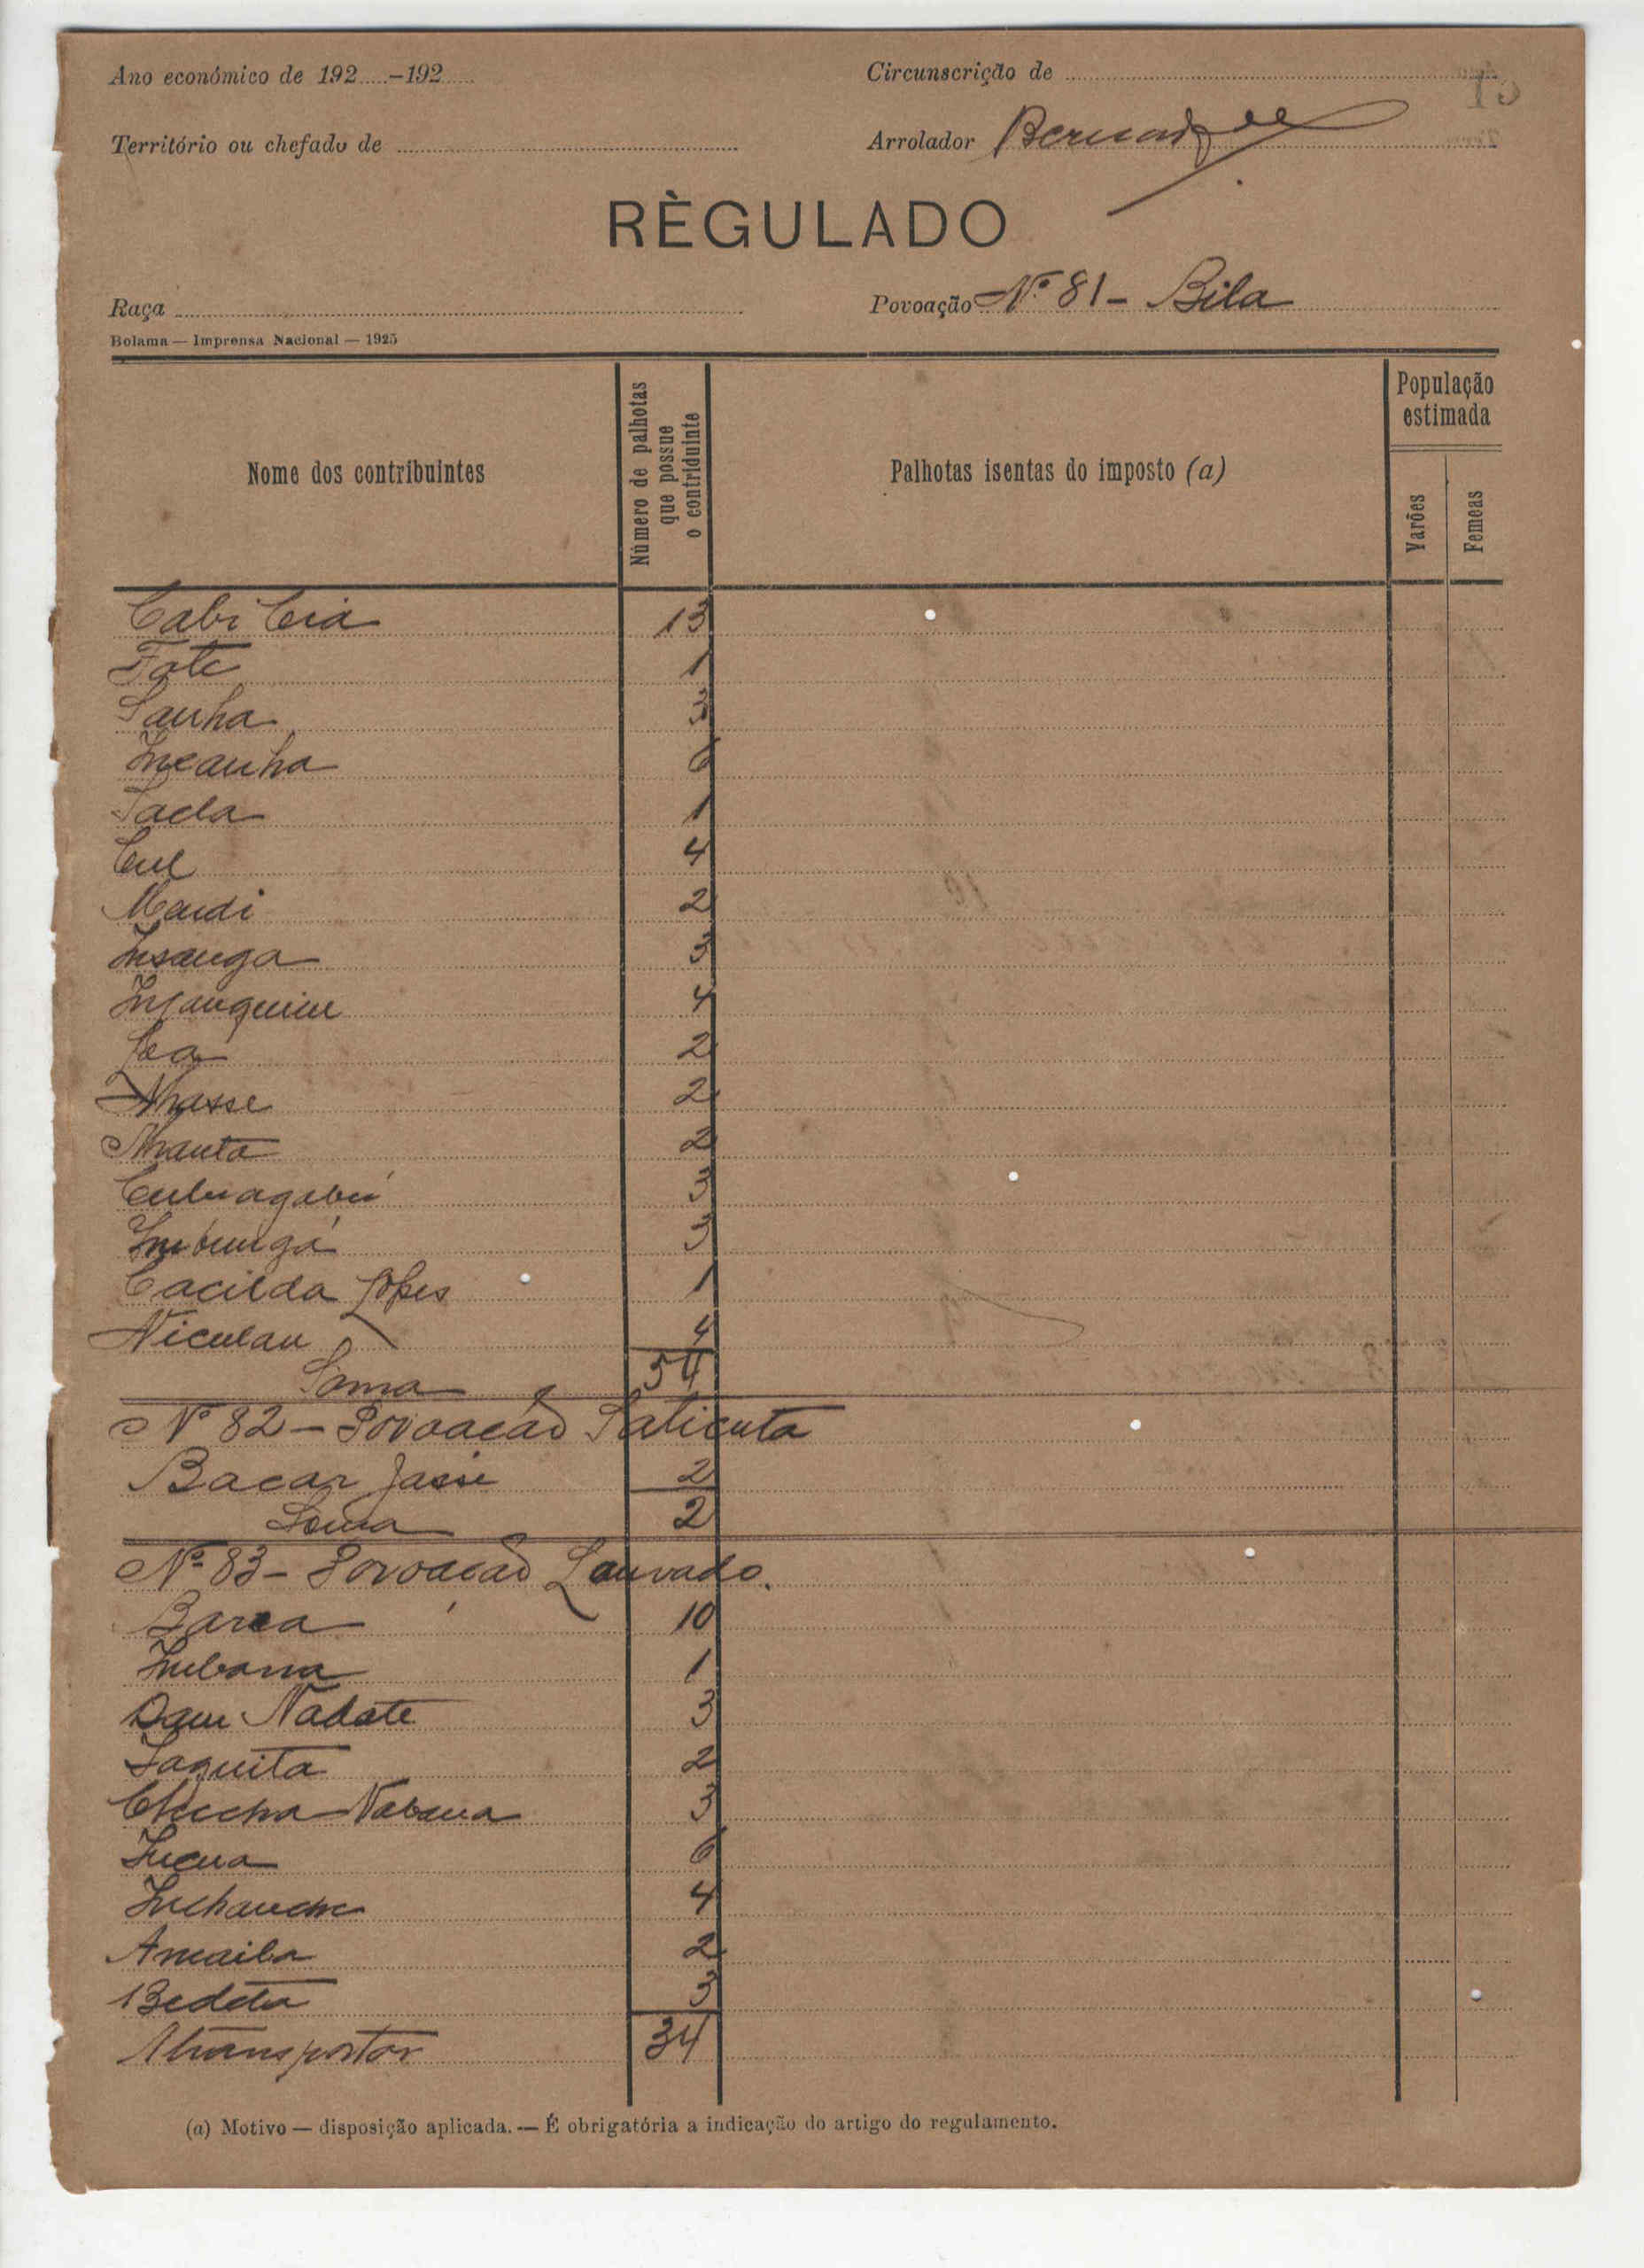 Ano económico de 192.....-192.....
Circunscrição de
Território ou chefado de
Arrolador
RÈGULADO
Raça
Povoação Nº 81 - Bila
Bolama — Imprensa Nacional — 1925
Nome dos contribuintes
Número de palhotas que possue o contriduinte
Palhotas isentas do imposto (a)
População estimada
Varões
Femeas
Cabi Ceia 13
Fote 1
Sanha 3
Incanha 6
Sada 1
Cul 4
Mandi 2
Insanga 3
Injanquim 4
2
Nhasse 2
Nhanta 2
3
Imbungá 3
Cacilda Lopes 1
Niculau 4
Soma 54
Nº 82 - Povoacão Saticuta
Bacar Jassi 2
Soma 2
Nº 83 - Povoacão Louvado.
Barca 10
Imbana 1
Dam Nadate 3
Saquita 2
Nabana 3
Incua 6
4
Amaila 2
Bedeta 3
A transportar 34
(a) Motivo — disposição aplicada. — É obrigatória a indicação do artigo do regulamento.